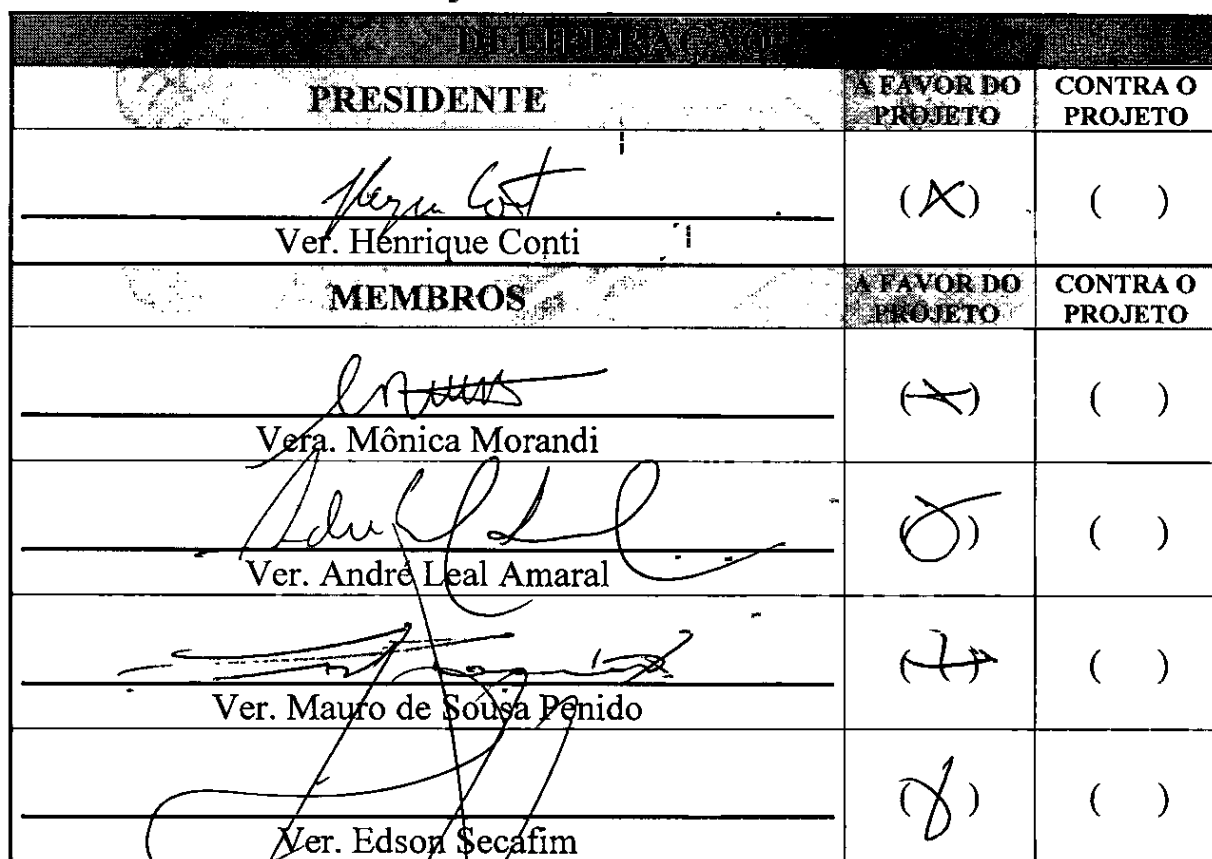 DELIBERAÇÃO
PRESIDENTE A FAVOR DO PROJETO CONTRA O PROJETO
Ver. Henrique Conti (X) ( )
MEMBROS A FAVOR DO PROJETO CONTRA O PROJETO
Vera. Mônica Morandi (X) ( )
Ver. André Leal Amaral (X) ( )
Ver. Mauro de Sousa Penido (X) ( )
Ver. Edson Secafim (X) ( )